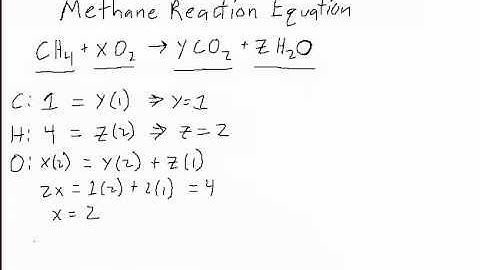 Methane Reaction Equation
CH₄ + X O₂ → Y CO₂ + Z H₂O
C: 1 = Y(1) ⇒ Y=1
H: 4 = Z(2) ⇒ Z=2
O: X(2) = Y(2) + Z(1)
2X = 1(2) + 2(1) = 4
X = 2